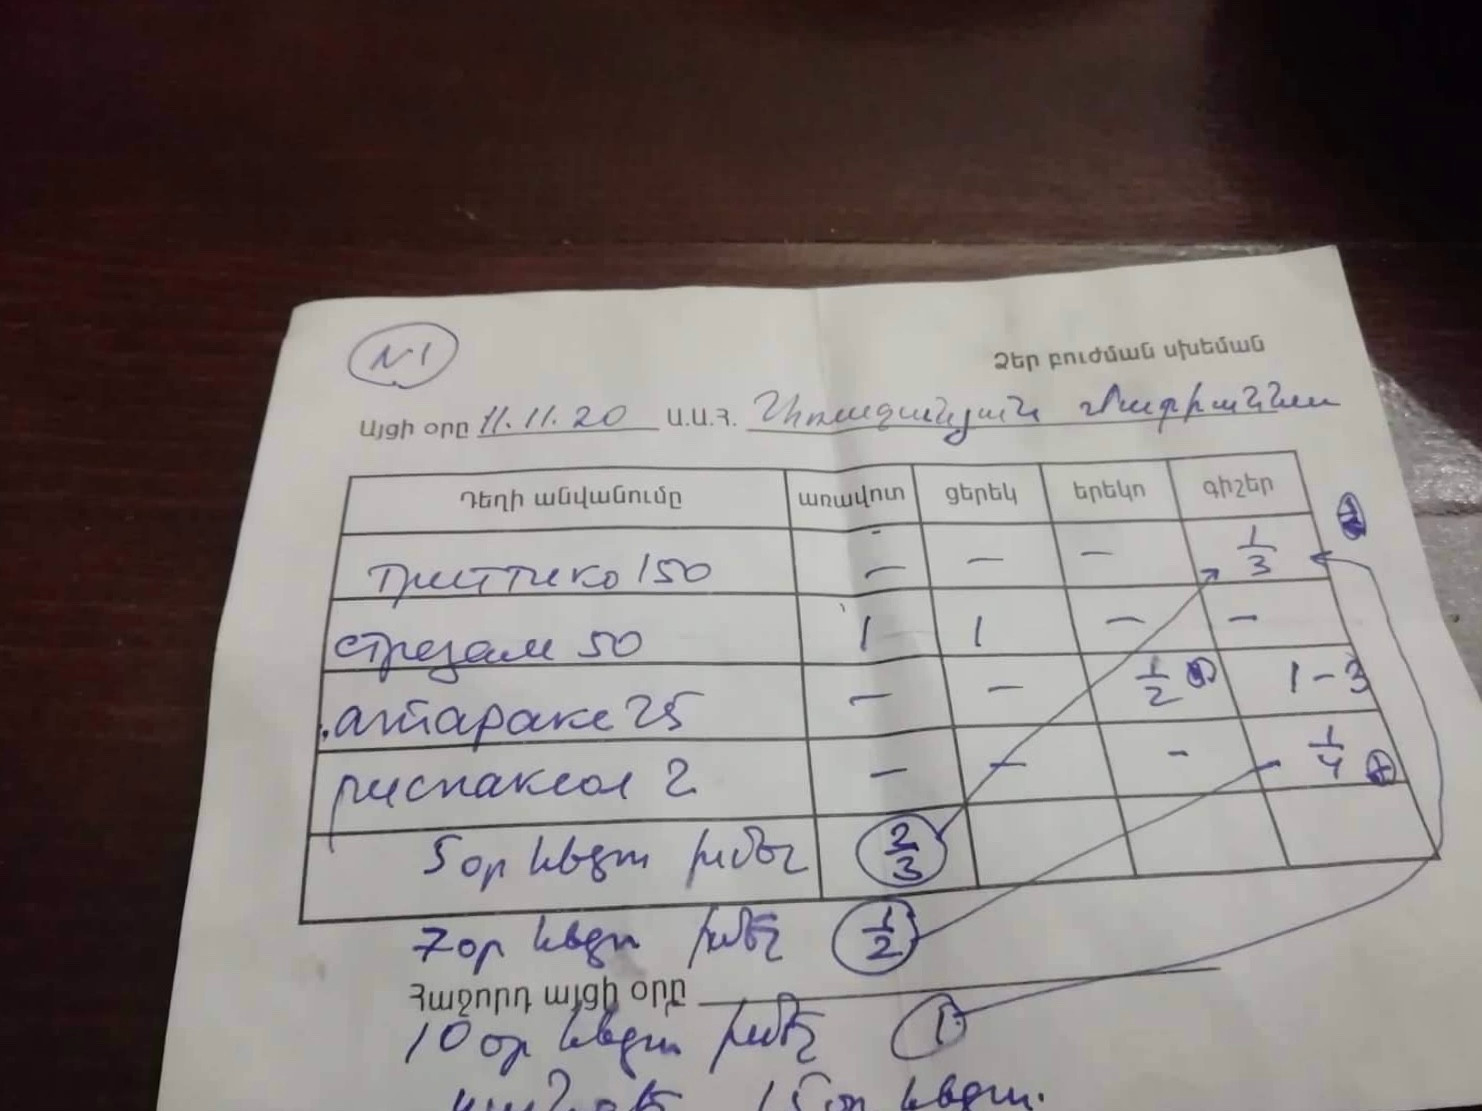 N1
Ձեր բուժման սխեման
Այցի օրը 11.11.20 Ա.Ա.Հ.
Դեղի անվանումը առավոտ ցերեկ երեկո գիշեր
триттико 150 — — — 1/3
стрезам 50 1 1 — —
атаракс 25 — — 1/2 1-3
рисполепт 2 — — - 1/4
5 օր հետո խմել 2/3
7 օր հետո խմել 1/2
Հաջորդ այցի օրը
10 օր հետո խմել 1
15 օր հետո.